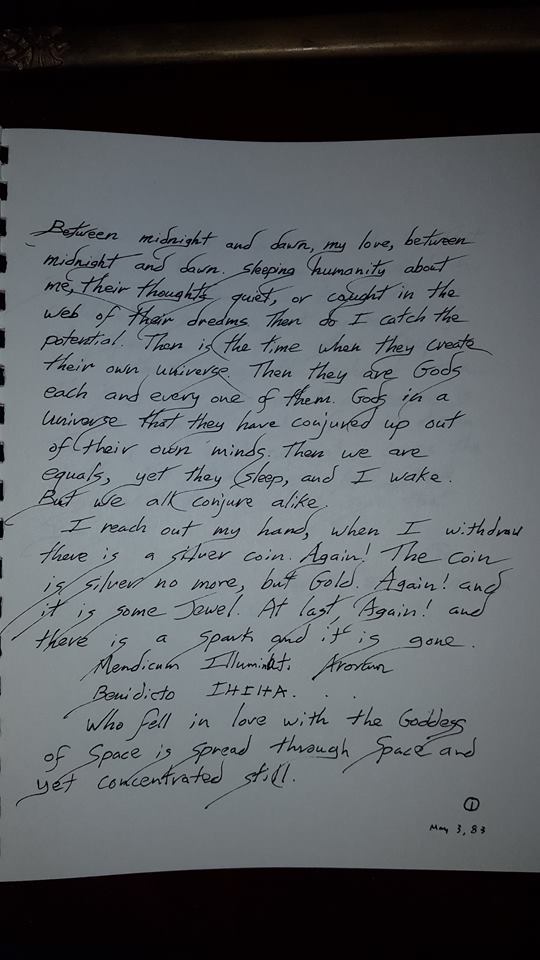 Between midnight and dawn, my love, between
midnight and dawn. Sleeping humanity about
me, their thoughts quiet, or caught in the
web of their dreams. Then do I catch the
potential. Then is the time when they create
their own universe. Then they are Gods
each and every one of them. Gods in a
Universe that they have conjured up out
of their own minds. Then we are
equals, yet they sleep, and I wake.
But we all conjure alike.
I reach out my hand, when I withdraw
there is a silver coin. Again! The coin
is silver no more, but Gold. Again! and
it is some Jewel. At last, Again! and
there is a spark and it is gone.
Mendicum Illuminati
Benidicto
Who fell in love with the Goddess
of Space is spread through Space and
yet concentrated still.
1
May 3, 83